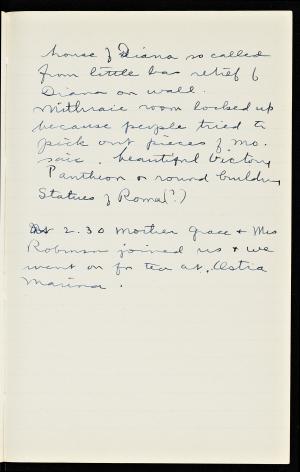 house of Diana so called
from little bas relief of
Diana on wall.
Mithraic room locked up
because people tried to
pick out pieces of mo-
saic. beautiful Victory
Pantheon or round building
Statues of Roma(?)
At 2.30 Mother Grace & Mrs
Robinson joined us & we
went on for tea at, Ostia
Marina.